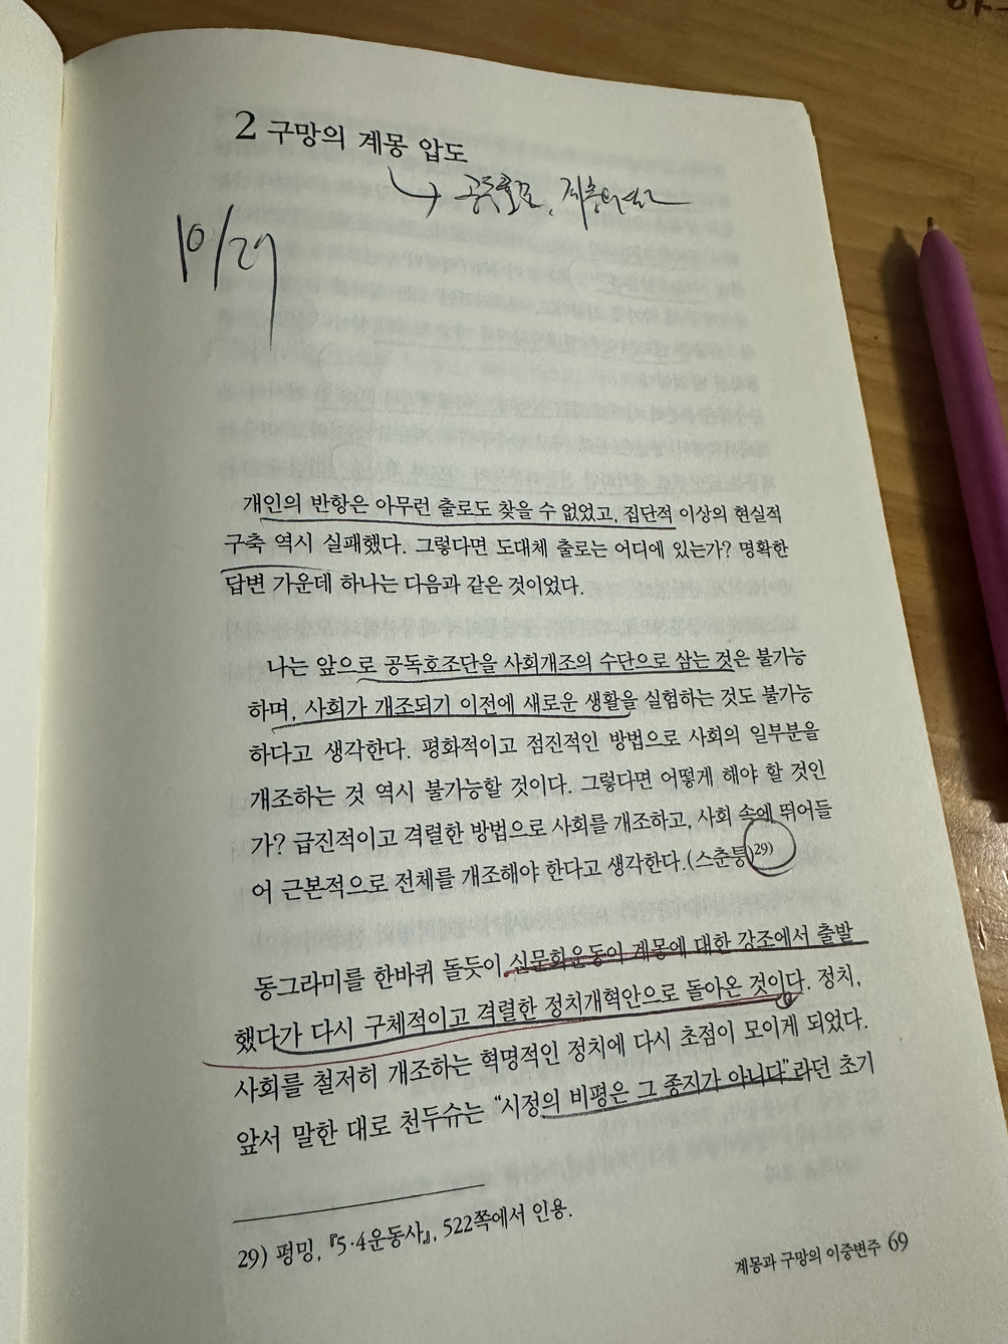 2 구망의 계몽 압도
공독호조,
10/29
개인의 반항은 아무런 출로도 찾을 수 없었고, 집단적 이상의 현실적
구축 역시 실패했다. 그렇다면 도대체 출로는 어디에 있는가? 명확한
답변 가운데 하나는 다음과 같은 것이었다.
나는 앞으로 공독호조단을 사회개조의 수단으로 삼는 것은 불가능
하며, 사회가 개조되기 이전에 새로운 생활을 실험하는 것도 불가능
하다고 생각한다. 평화적이고 점진적인 방법으로 사회의 일부분을
개조하는 것 역시 불가능할 것이다. 그렇다면 어떻게 해야 할 것인
가? 급진적이고 격렬한 방법으로 사회를 개조하고, 사회 속에 뛰어들
어 근본적으로 전체를 개조해야 한다고 생각한다.(스춘퉁)29)
동그라미를 한바퀴 돌듯이 신문화운동이 계몽에 대한 강조에서 출발
했다가 다시 구체적이고 격렬한 정치개혁안으로 돌아온 것이다. 정치,
사회를 철저히 개조하는 혁명적인 정치에 다시 초점이 모이게 되었다.
앞서 말한 대로 천두슈는 “시정의 비평은 그 종지가 아니다”라던 초기
29) 펑밍, 『5·4운동사』, 522쪽에서 인용.
계몽과 구망의 이중변주 69